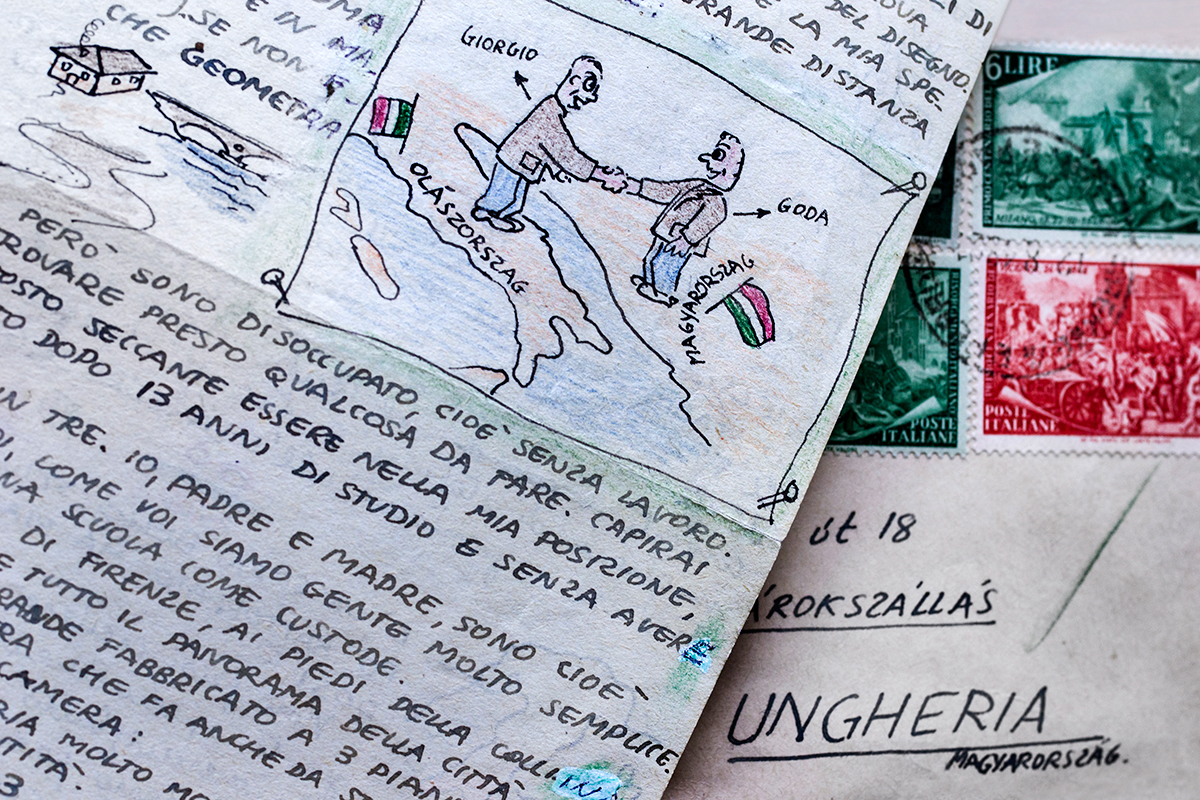 DI
DEL DISEGNO.
E LA MIA SPE.
GRANDE DISTANZA
E IN MA-
). SE NON E-
CHE GEOMETRA
GIORGIO
GODA
OLÁSZORSZAG
MAGYARORSZAG
PERÒ SONO DISOCCUPATO, CIOE` SENZA LAVORO.
TROVARE PRESTO QUALCOSA DA FARE. CAPIRAI
OSTO SECCANTE ESSERE NELLA MIA POSIZIONE,
TO DOPO 13 ANNI DI STUDIO E SENZA AVERE
IN TRE. IO, PADRE E MADRE, SONO CIOE`
DI, COME VOI SIAMO GENTE MOLTO SEMPLICE.
NA SCUOLA COME CUSTODE.
DI FIRENZE, AI PIEDI DELLA COLLINA
E TUTTO IL PANORAMA DELLA CITTÀ
RANDE FABBRICATO A 3 PIANI
RA CHE FA ANCHE DA
CAMERA:
RIA MOLTO
NTITÀ.
3
6 LIRE
MILANO
POSTE
ITALIANE
POSTE
ITALIANE
út 18
ÁROKSZÁLLÁS
UNGHERIA
MAGYARORSZÁG.